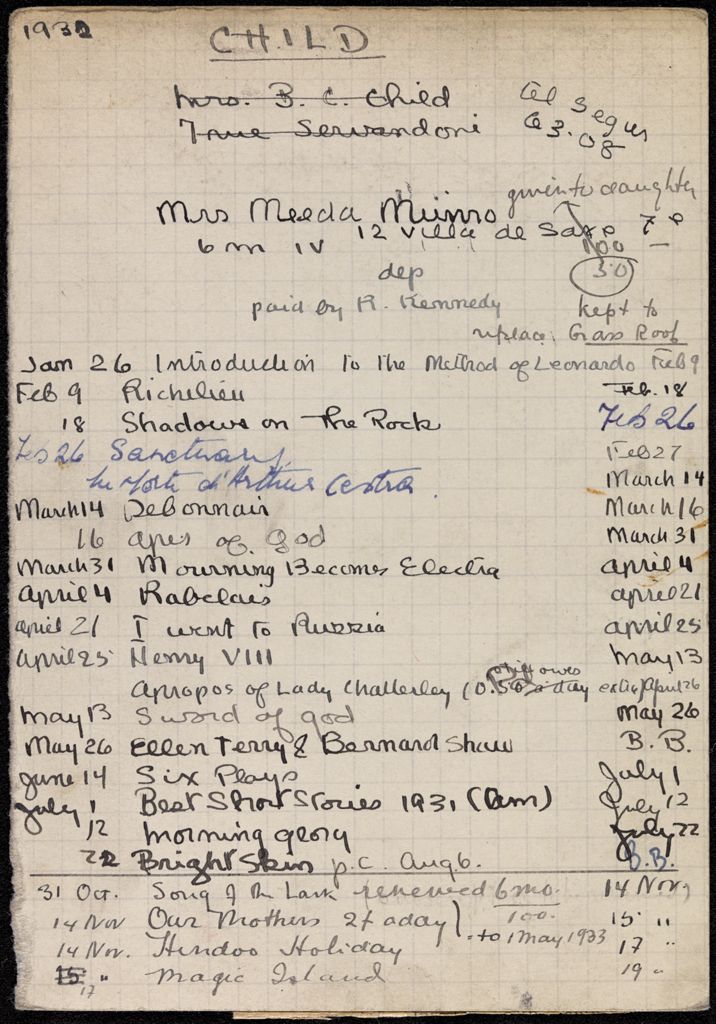 1932
CHILD
Mrs. B. C. Child
7 rue Servandoni
tel Segur
63.08
given to daughter
Mrs Meeda Munro
6 m IV 12 Villa de Saxe 7e
100
dep 50
paid by R. Kennedy kept to
replace Grass Roof
Jan 26 Introduction to the Method of Leonardo Feb 9
Feb 9 Richelieu Feb. 18
18 Shadows on the Rock Feb 26
Feb 26 Sanctuary Feb 27
Morte d'Arthur extra. March 14
March 14 Debonnair March 16
16 apes of god March 31
March 31 Mourning Becomes Electra april 4
april 4 Rabelais april 21
april 21 I went to Russia april 25
april 25 Henry VIII May 13
Apropos of Lady Chatterley (0.50 a day extra) April 26
still owes
May 13 Sword of god May 26
May 26 Ellen Terry & Bernard Shaw B. B.
June 14 Six Plays July 1
July 1 Best Short Stories 1931 (am) July 12
12 morning glory July 22
22 Bright Skin p.c. Aug 6. B.B.
31 Oct. Song of the Lark renewed 6 mo. 14 Nov,
14 Nov Our Mothers 2f a day 100. 15 "
14 Nov. Hindoo Holiday to 1 May 1933 17 "
15 " Magic Island 19 "
17